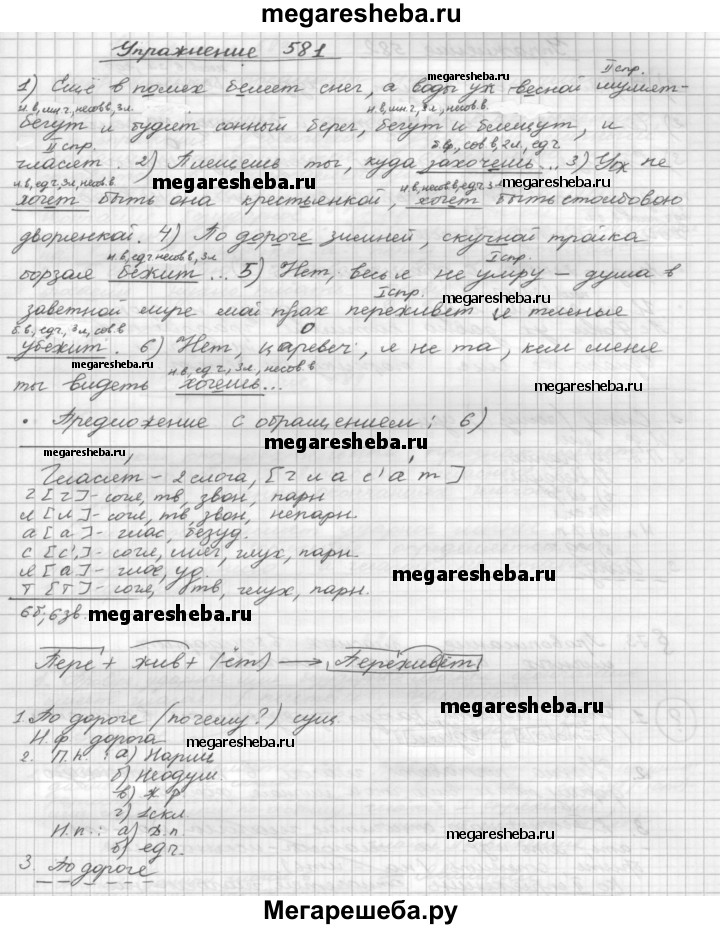 megaresheba.ru
Упражнение 581
megaresheba.ru
II спр.
1) Ещё в полях белеет снег, а воды уж весной шумят-
н.в, мн.ч, несов.в, 3л. н.в, мн.ч, 3л, несов.в.
бегут и будят сонный берег, бегут и блещут, и
II спр. б.в, сов.в, 2л, ед.ч
гласят. 2) Плещешь ты, куда захочешь... 3) Уж не
н.в, ед.ч, 3л, несов.в megaresheba.ru н.в, несов.в, ед.ч, 3л megaresheba.ru
хочет быть она крестьянкой, хочет быть столбовою
дворянкой. 4) По дороге зимней, скучной тройка
н.в, ед.ч несов.в, 3л I спр.
борзая бежит... 5) Нет, весь я не умру – душа в
I спр. megaresheba.ru
заветной лире мой прах переживёт и тленья
б.в, ед.ч, 3л, сов.в О
убежит. 6) Нет, царевич, я не та, кем меня
megaresheba.ru н.в, ед.ч, 3л, несов.в
ты видеть хочешь... megaresheba.ru
• Предложение с обращением: 6)
megaresheba.ru
Гласят – 2 слога, [г л а с' а т]
г [г] - согл, тв, звон, парн
л [л] - согл, тв, звон, непарн.
а [а] - глас, безуд.
с [с'] - согл, мяг, глух, парн.
я [а] - глас, уд.
megaresheba.ru
т [т] - согл, тв, глух, парн.
6б, 6зв. megaresheba.ru
Пере + жив + (-ёт) → Переживёт
megaresheba.ru
1. По дороге (почему?) сущ.
Н.Ф. дорога megaresheba.ru
2. П.к.: а) Нариц
б) Неодуш
в) ж.р
г) 1скл.
Н.п.: а) Д.п. megaresheba.ru
б) ед.ч.
3. По дороге
Мегарешеба.ру